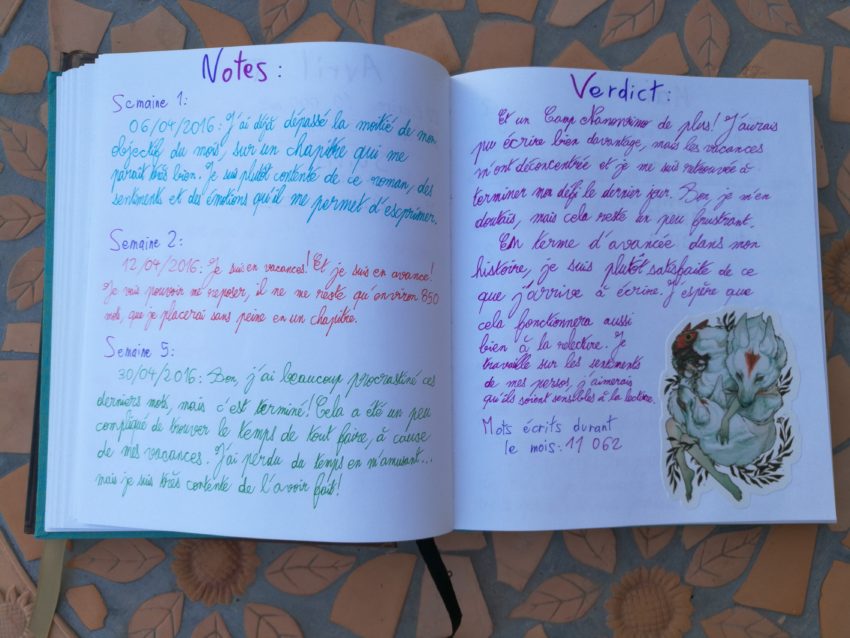 Notes :
Semaine 1 :
06/04/2016 : J'ai déjà dépassé la moitié de mon
objectif du mois, sur un chapitre qui me
paraît très bien. Je suis plutôt contente de ce roman, des
sentiments et des émotions qu'il me permet d'esprimer.
Semaine 2 :
12/04/2016 : Je suis en vacances ! Et je suis en avance !
Je vais pouvoir me reposer, il ne me reste qu'environ 850
mots, que je placerai sans peine en un chapitre.
Semaine 5 :
30/04/2016 : Bon, j'ai beaucoup procrastiné ces
derniers mots, mais c'est terminé ! Cela a été un peu
compliqué de trouver le temps de tout faire, à cause
de mes vacances. J'ai perdu du temps en m'amusant...
mais je suis très contente de l'avoir fait !
Verdict :
Et un Camp Nanowrimo de plus ! J'aurais
pu écrire bien davantage, mais les vacances
m'ont déconcentrée et je me suis retrouvée à
terminer mon défi le dernier jour. Bon, je m'en
doutais, mais cela reste un peu frustrant.
En terme d'avancée dans mon
histoire, je suis plutôt satisfaite de ce
que j'arrive à écrire. J'espère que
cela fonctionnera aussi
bien à la relecture. Je
travaille sur les sentiments
de mes persos, j'aimerais
qu'ils soient sensibles à la lecture.
Mots écrits durant
le mois : 11 062